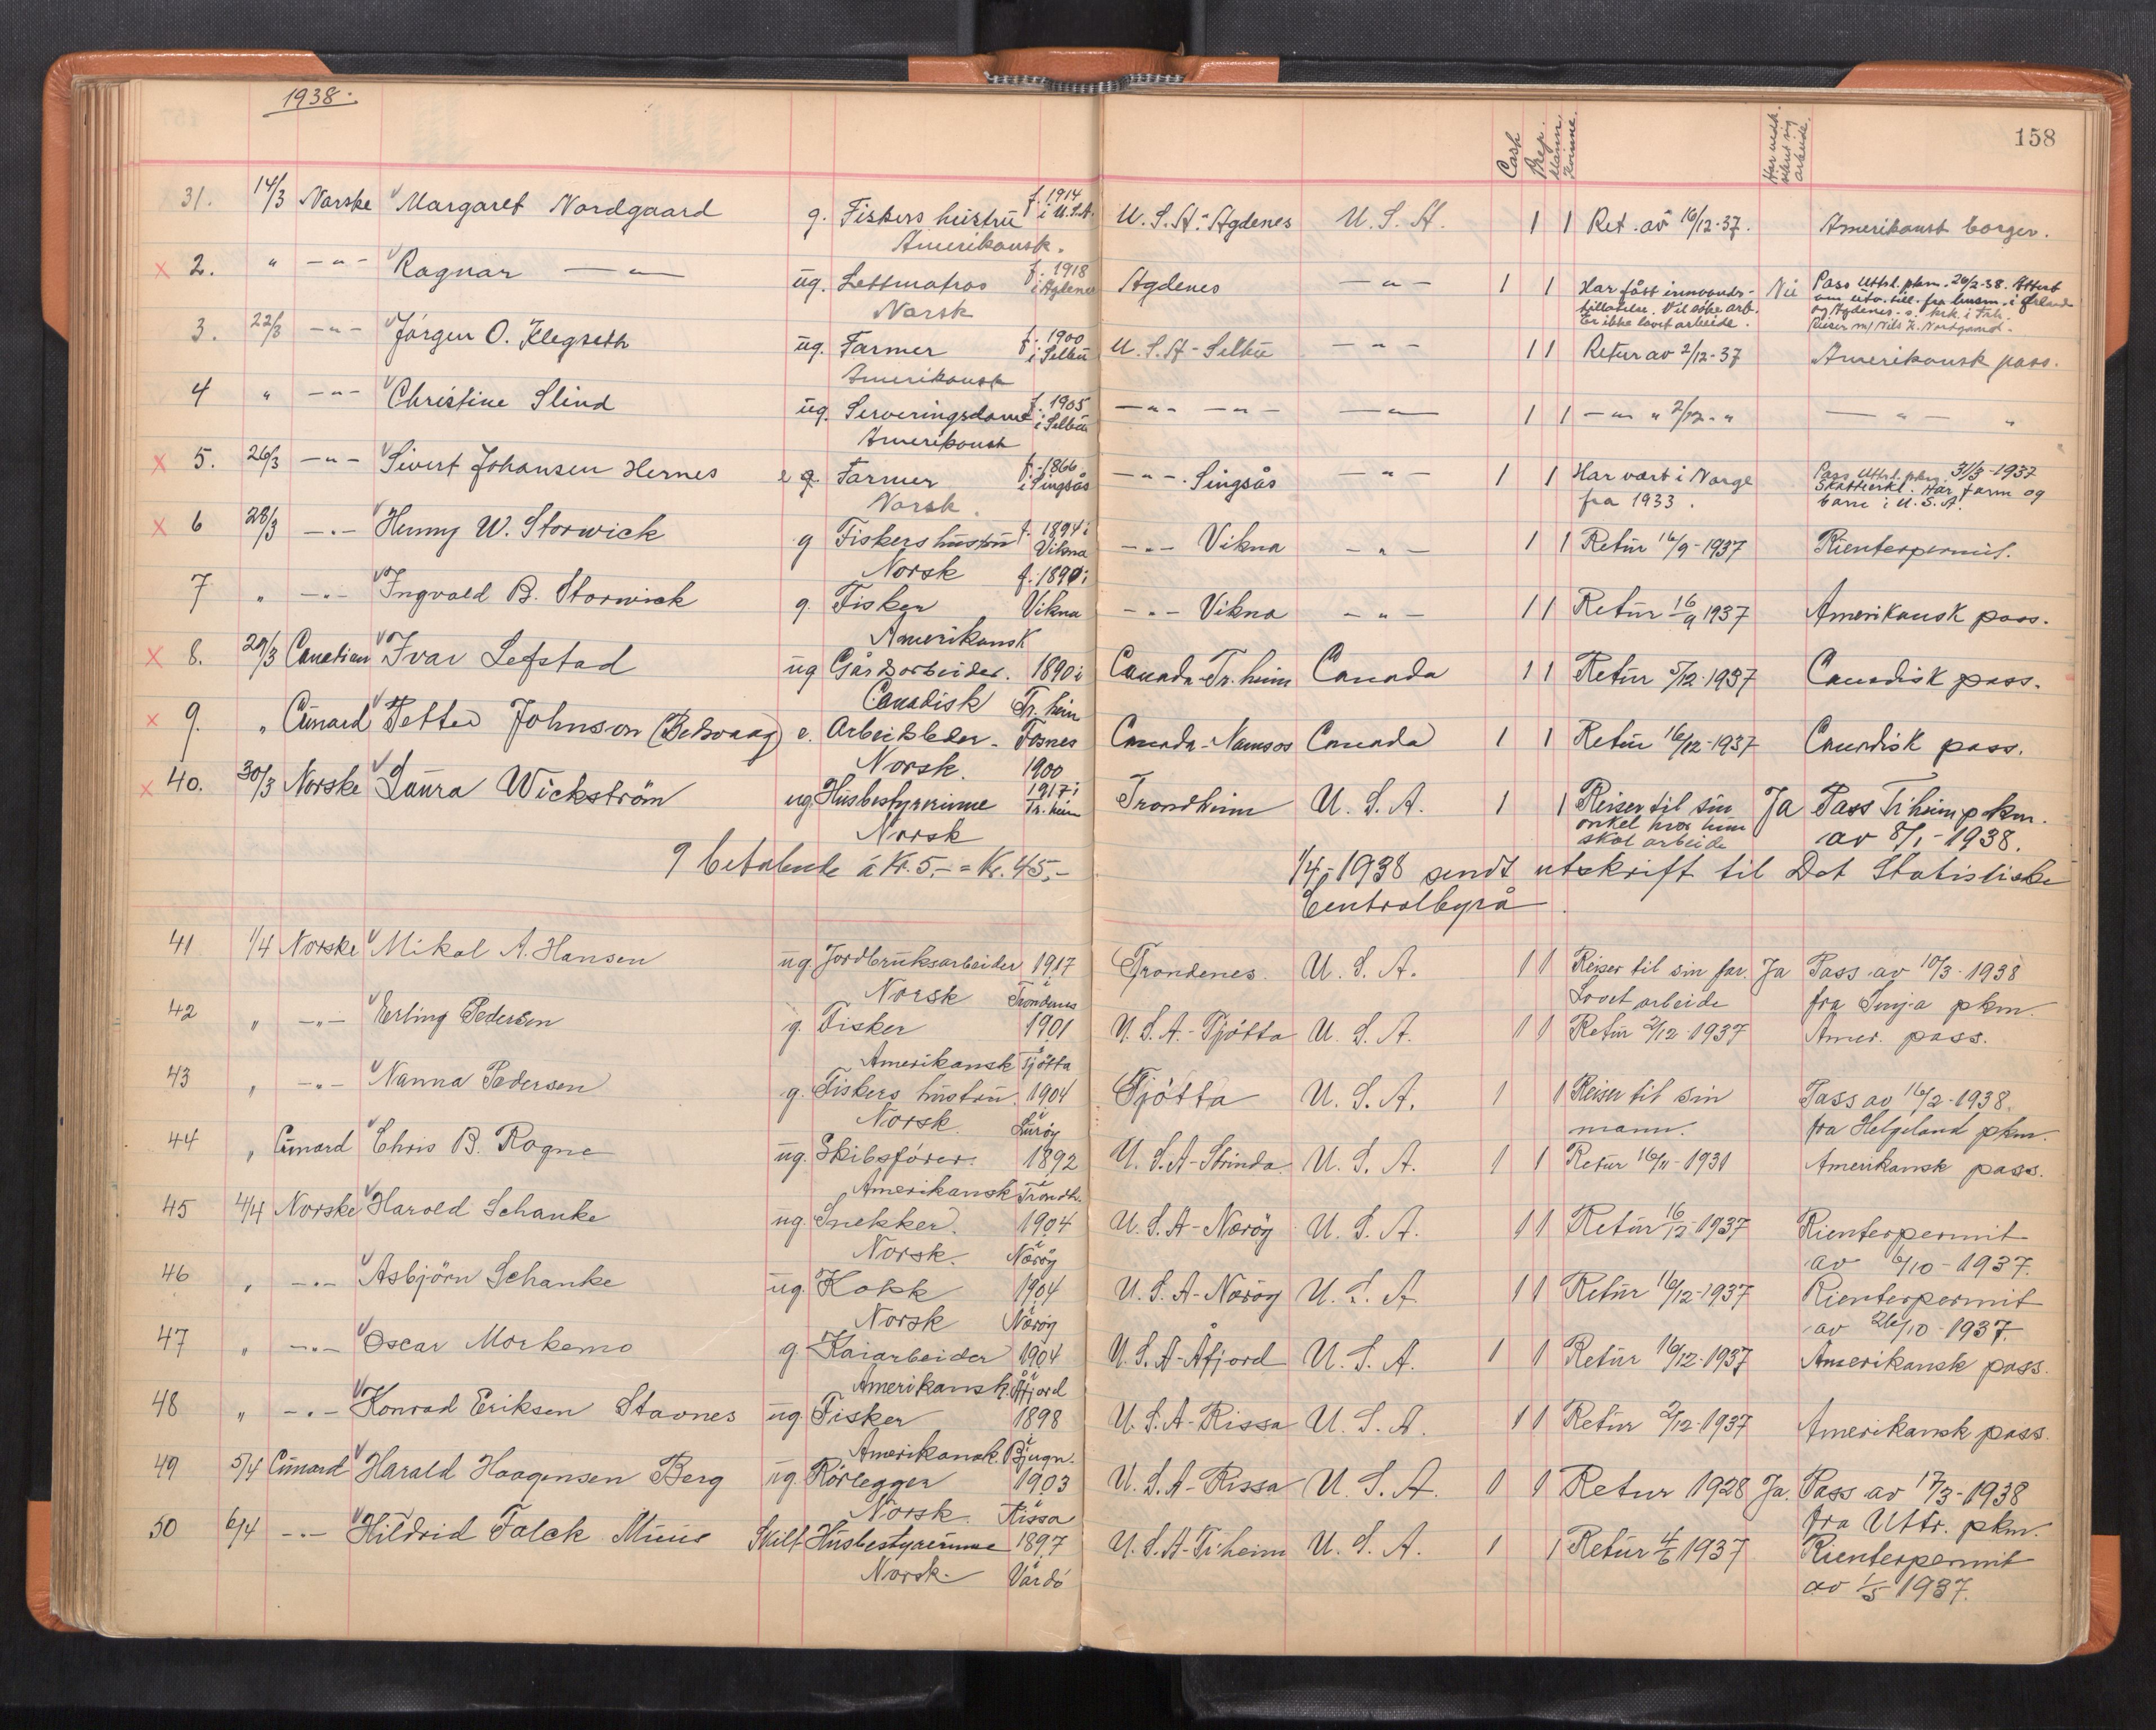 1938.
158
Cash
Prep.
Mann.
Kvinne.
31. 14/3 Norske Margaret Nordgaard g. Fiskers hustru f. 1914 i U.S.A. U.S.A.-Agdenes U.S.A. 1 1 Ret. av 16/12-37. Amerikansk borger.
Amerikansk.
2. " -"- Ragnar -"- ug. Lettmatros f. 1918 i Agdenes Agdenes -"- 1 1 Har fått innvandr- Nei Pass Uttrl. pkm. 26/2-38. Attest
Norsk tillatelse. Vil søke arb. om utv. till. fra
Er ikke lovet arbeide. og Agdenes.
Reiser m/ Nils K. Nordgaard.
3. 22/3 -"- Jörgen O. Klegseth ug. Farmer f. 1900 i Selbu U.S.A-Selbu -"- 1 1 Retur av 2/12-37 Amerikansk pass.
Amerikansk
4 " -"- Christine Slind ug. Serveringsdame f. 1905 i Selbu -"- -"- -"- 1 1 -"- " 2/12-" -"- "
Amerikansk
5. 26/3 -"- Sivert Johansen Hernes e g. Farmer f. 1866 i Singsås -"-. Singsås -"- 1 1 Har vært i Norge Pass Uttrl. pkm. 31/3-1937
Norsk. fra 1933. Skatteerkl. Har farm og
barn i U.S.A.
6 28/3 -"- Henny W. Storwick g Fiskers hustru f. 1894 i Vikna -"- Vikna -"- 1 1 Retur 16/9-1937 Rienterpermit.
Norsk
7 " -"- Ingvald B. Storwick g. Fisker f. 1890 i Vikna -"- Vikna -"- 1 1 Retur 16/9 1937 Amerikansk pass.
Amerikansk
8. 29/3 Canadian Ivar Lefstad ug Gårdsarbeider. 1890 i Canada-Tr.heim Canada 1 1 Retur 5/12-1937 Canadisk pass.
Canadisk Tr.heim
9. " Cunard Petter Johnson e. Arbeidsleder. Fosnes Canada-Namsos Canada 1 1 Retur 16/12-1937 Canadisk pass.
Norsk. 1900
40. 30/3 Norske Laura Wickström ug. Husbestyrerinne 1917 i Tr.heim Trondheim U.S.A. 1 1 Reiser til sin Ja Pass Tr.heim pkm.
Norsk onkel hvor hun av 8/1-1938.
skal arbeide
9 betalende à Kr. 5,- = Kr. 45,-
1/4-1938 sendt utskrift til Det Statistiske
Centralbyrå.
41 1/4 Norske Mikal A. Hansen ug. Jordbruksarbeider 1917 Trondenes. U.S.A. 1 1 Reiser til sin far. Ja Pass av 10/3-1938
Norsk i Trondenes Lovet arbeide fra Senja pkm.
42 " -"- Erling Pedersen g. Fisker 1901 U.S.A.-Tjötta U.S.A. 1 1 Retur 2/12-1937 Amer. pass.
Amerikansk i Tjötta
43 " -"- Nanna Pedersen g. Fiskers hustru. 1904 Tjötta U.S.A. 1 1 Reiser til sin Pass av 16/2-1938.
Norsk. i Luröy mann. fra Helgeland pkm.
44 " Cunard Chris B. Rogne ug. Skibsförer. 1892 U.S.A-Strinda. U.S.A. 1 1 Retur 16/11-1931 Amerikansk pass.
Amerikansk i Trondh.
45 4/4 Norske Harold Schanke ug. Snekker. 1904 U.S.A-Naröy U.S.A. 1 1 Retur 16/12-1937 Rienterpermit
Norsk. i Naröy av 6/10-1937.
46 " -"- Asbjörn Schanke ug. Kokk 1904 U.S.A-Naröy U.S.A. 1 1 Retur 16/12-1937 Rienterpermit
Norsk i Naröy av 26/10-1937.
47 " -"- Oscar Morkemo g. Kaiarbeider 1904 U.S.A-Åfjord U.S.A. 1 1 Retur 16/12-1937 Amerikansk pass.
Amerikansk. i Åfjord
48 " -"- Konrad Eriksen Stavnes ug Fisker 1898 U.S.A-Rissa U.S.A. 1 1 Retur 2/12-1937 Amerikansk pass.
Amerikansk. i Bjugn.
49 5/4 Cunard Harald Haagensen Berg ug. Rörlegger 1903 U.S.A-Rissa U.S.A. 1 1 Retur 1928 Ja. Pass av 17/3-1938
Norsk. Rissa fra Uttr. pkm.
50 6/4 -"- Hildrid Falck Muus Skilt Husbestyrerinne 1897 U.S.A-Tr.heim U.S.A. 1 1 Retur 4/6 1937 Rienterpermit
Norsk. i Vardö av 1/5 1937.